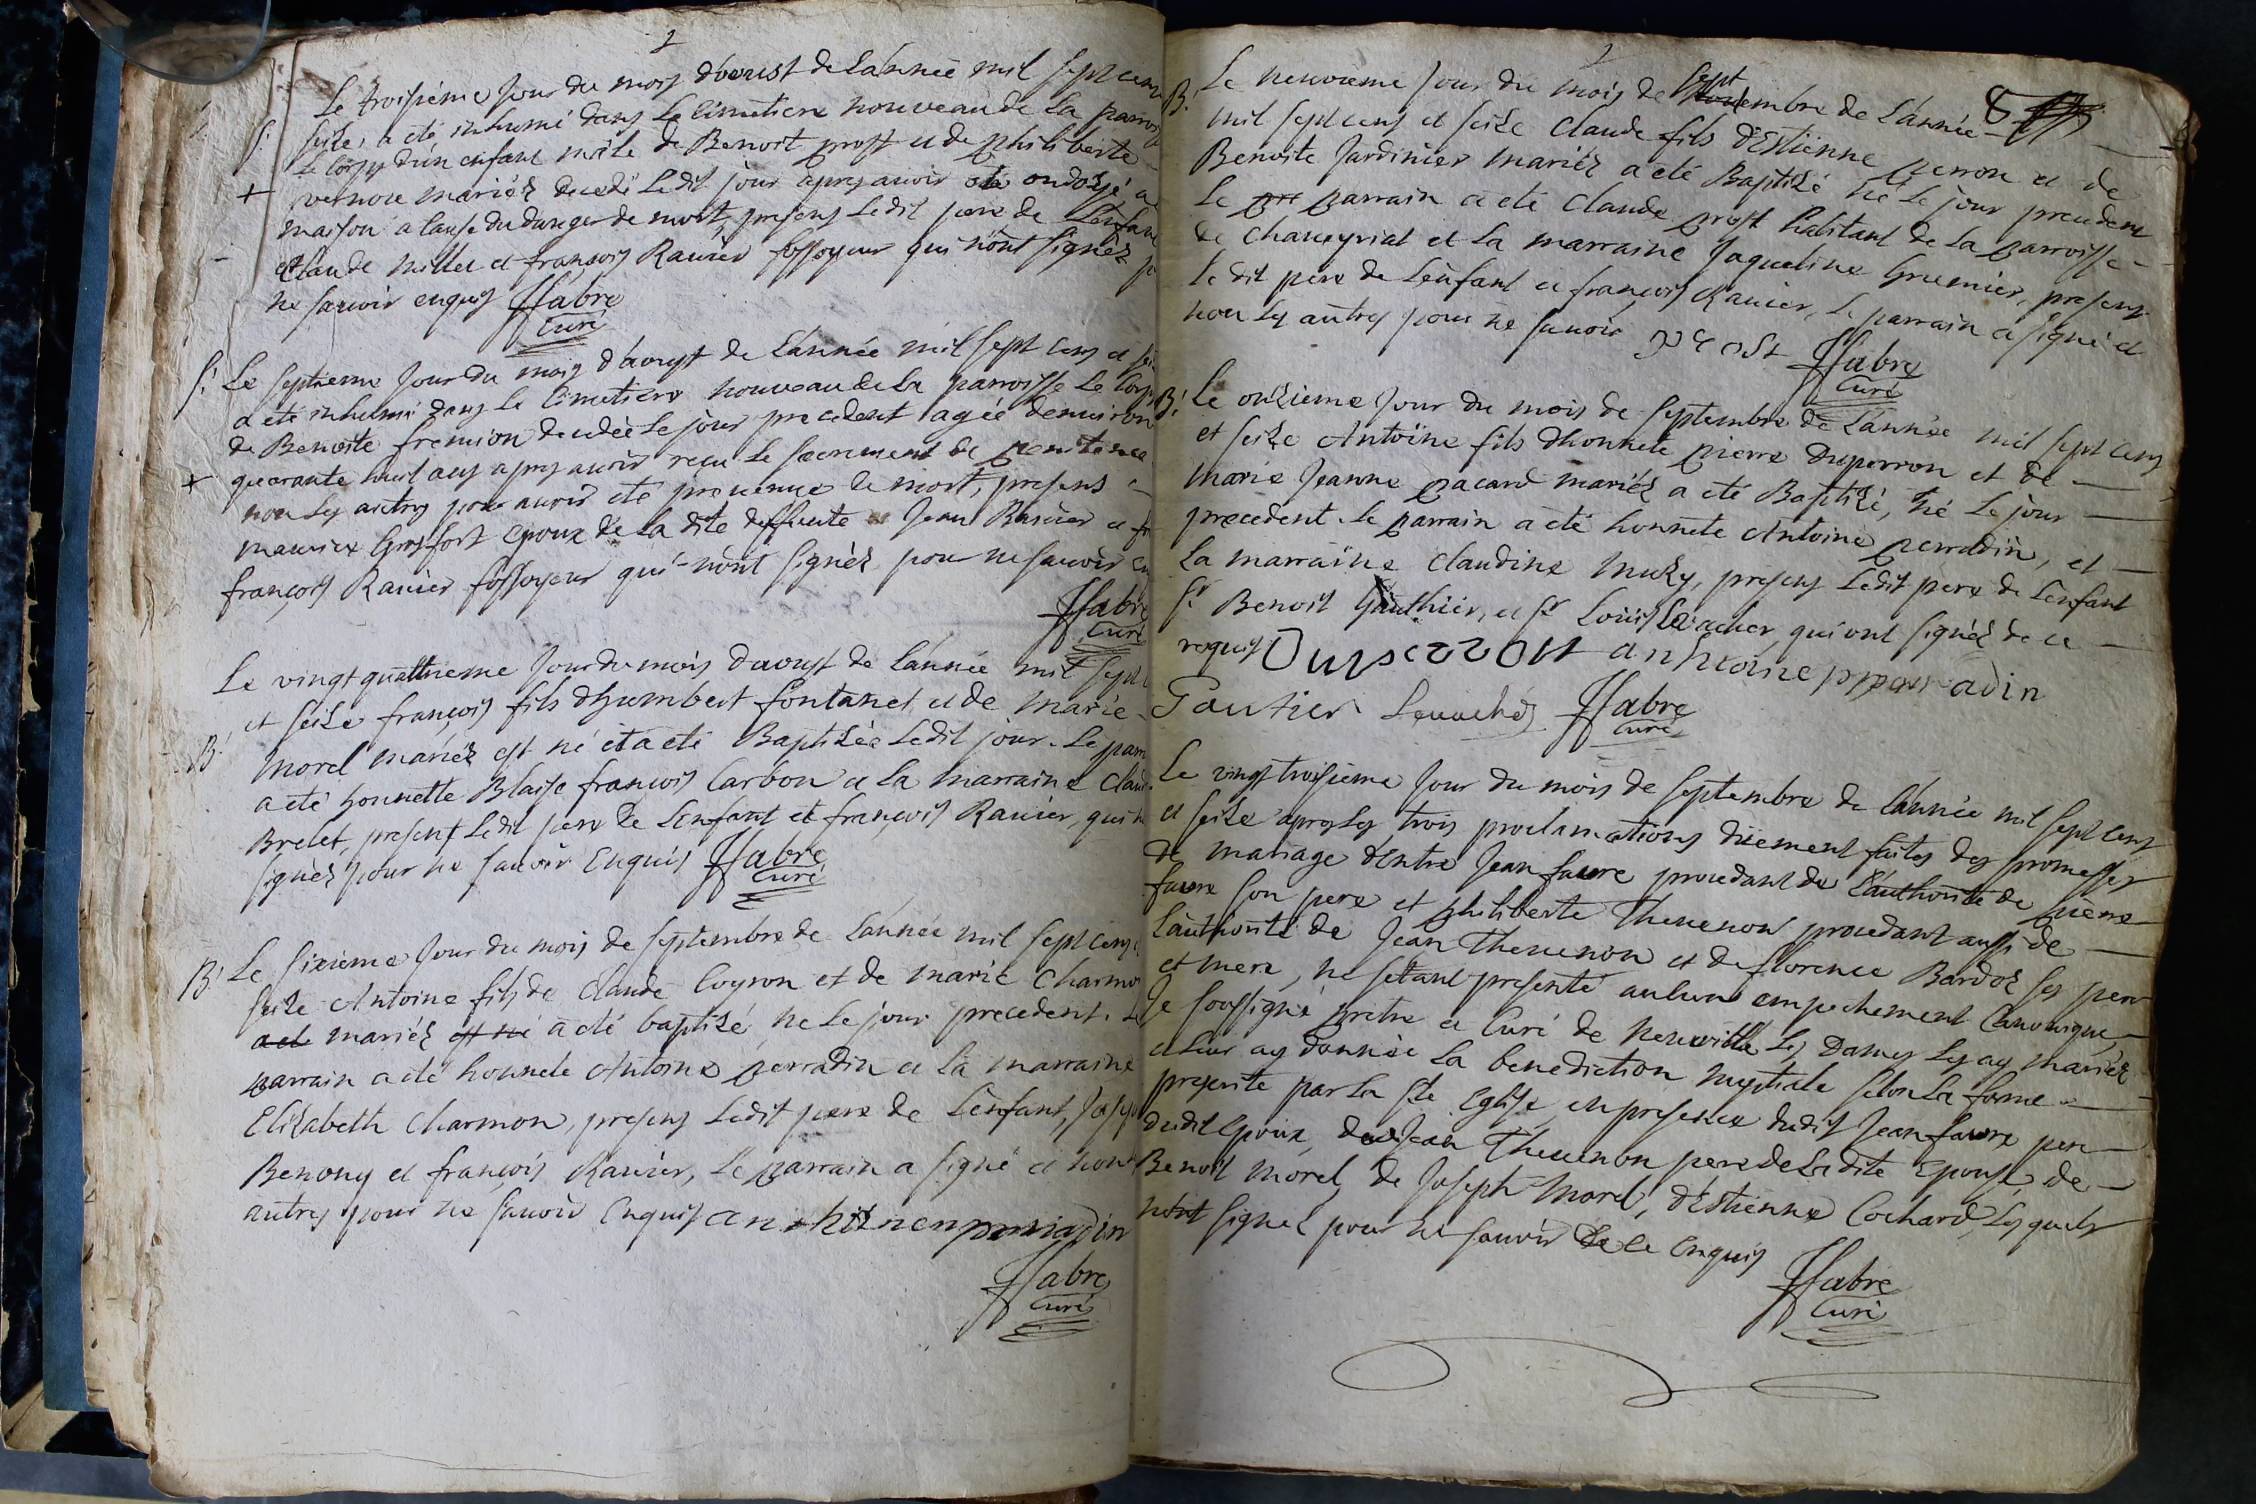 2
Le troisiéme Jour du mois d'aoust de Lannée mil sept cens
S. seise, a été inhumé dans Le Cimetiere nouveau de La parroi
Le Corps d'un enfant mâle de Benoit prost et de philiberte
+ vernoux mariéz decedé Ledit jour apres avoir été ondoyé a
maison a Cause du danger de mort, presens Ledit pere de L'enfant
Claude Millet et françois Ravier fossoyeur qui n'ont signéz p
ne sçavoir enquis JFabre
Curé
S. Le septieme Jour du mois d'aoust de Lannée mil sept cens et sei
a été inhumé dans Le Cimetiere nouveau de La parroisse Le Corps
de Benoite fremion decedée Le jour precedent agée denviron
+ quarante huit ans apres avoir reçu Le sacrement de penitence
non Les autres pour avoir eté prevenue de mort, presens
maurice Gonffort epoux de La dite deffunte Jean Ravier et fr
françois Ravier fossoyeur qui n'ont signéz pour ne sçavoir en
JFabre
Curé
Le vingt quattrieme Jour du mois d'aoust de Lannée mil sept
et seise françois fils d'humbert fontanel et de marie
B. Morel mariéz est né et a eté Baptisée Ledit jour. Le parr
a eté honnette Blaise françois Carbon et La marraine Claud
Brelet, present Ledit pere de L'enfant et françois Ravier, qui n
signéz pour ne sçavoir Enquis JFabre
Curé
B. Le sixieme Jour du mois de septembre de Lannée mil sept cens
seise Antoine fils de Claude Coyron et de marie Charmo
a eté mariéz est né a eté baptisé né Le jour precedent. L
parrain a eté honnete Antoine perradin et La marraine
Elisabeth Charmon, presens Ledit pere de L'enfant, Josep
Benony et françois Ravier, Le parrain a signé et non
autres pour ne sçavoir Enquis
JFabre
Curé
2
8
B. Le neuvieme Jour du mois de septembre de Lannée
mil sept cens et seise Claude fils d'Estienne perron et de
Benoite Jardinier mariéz a eté Baptisé né Le jour precedent
Le parrain a eté Claude prost habitant de La parroisse
de Chaveyriat et La marraine Jaqueline Gremier, presens
Le dit pere de L'enfant et françois Ravier, Le parrain a signé et
non Les autres pour ne sçavoir prost JFabre
Curé
B. Le onzieme Jour du mois de septembre de Lannée mil sept cens
et seise Antoine fils d'honnete pierre Duperron et de
Marie Jeanne pacard mariéz a eté Baptisé, né Le jour
precedent. Le parrain a eté honnete Antoine perradin, et
La marraine Claudine muzy, presens Ledit pere de L'enfant
Sr. Benoit Gauthier, et Sr Louis Levacher qui ont signéz de ce
requis Duperron anthoine pperradin
Gautier Levacher JFabre
Curé
Le vingt troisieme Jour du mois de septembre de Lannée mil sept cens
et seise apres Les trois proclamations düement faites des promesses
de mariage d'Entre Jean favre procedant de L'authorité de pierre
favre son pere et philiberte Thevenon procedant aussi de
L'authorité de Jean Thevenon et de florence Bardoz ses pere
et mere, ne s'etant presenté aucun empechement Canonique,
Je soussigné pretre et Curé de Neuville Les Dames Les ay mariéz
et Leur ay donnée La benediction nuptiale selon La forme
prescrite par La Ste Eglise en presence dudit Jean favre pere
dudit Epoux, de Jean Thevenon pere de Ladite Epouse, de
Benoit Morel, de Joseph Morel, d'Estienne Cochard, Lesquels
n'ont signéz pour ne sçavoir de ce Enquis
JFabre
Curé